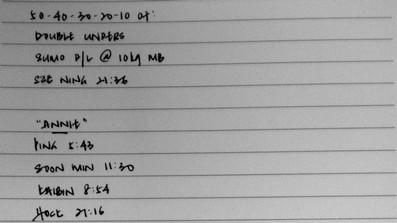 50-40-30-20-10 of:
DOUBLE UNDERS
SUMO D/L @ 10kg MB
SZE NING 21:36
"ANNIE"
PING 5:43
SOON MIN 11:30
KAIBIN 8:54
HOCK 21:16